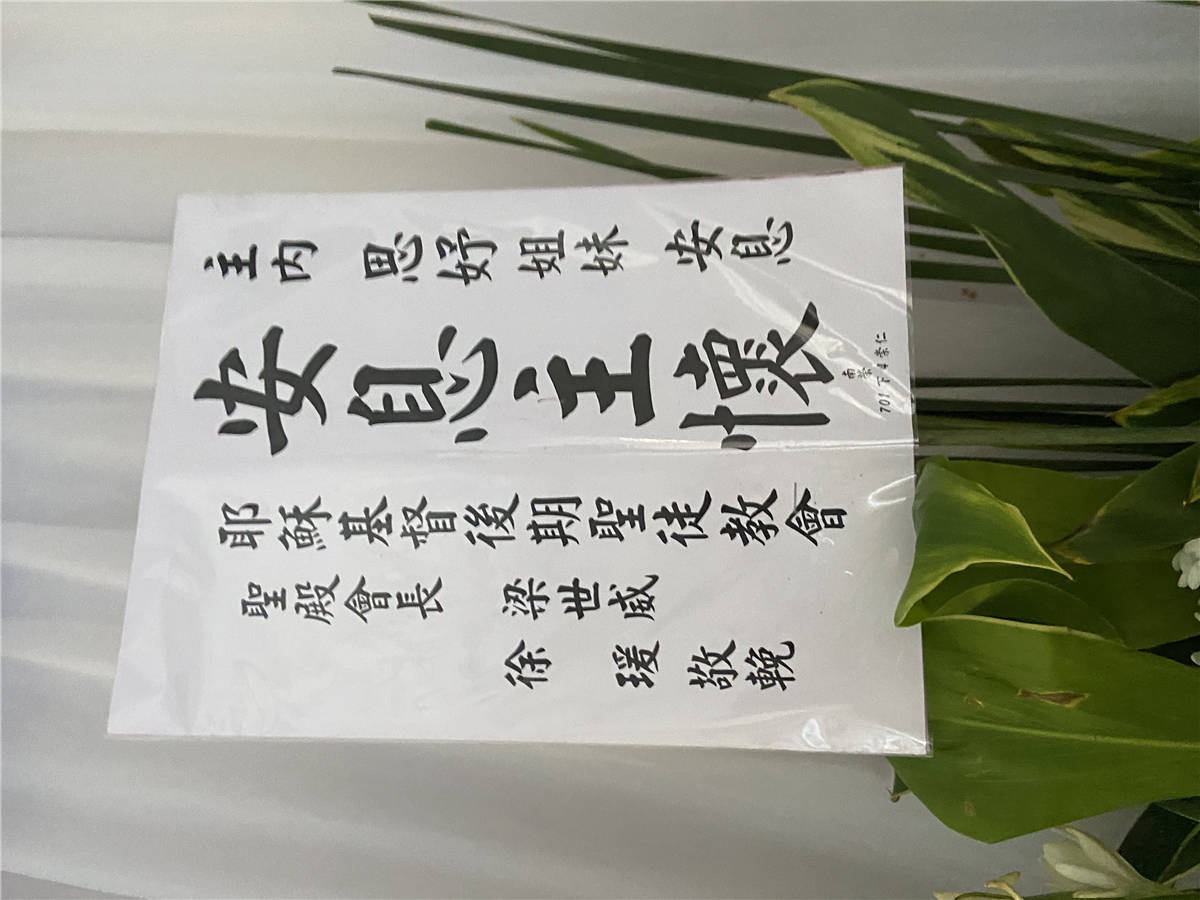 主內 思妤姐妹 安息
安息主懷
耶穌基督後期聖徒教會
聖殿會長 梁世威
徐 瑗 敬輓
南榮
701下4崇仁